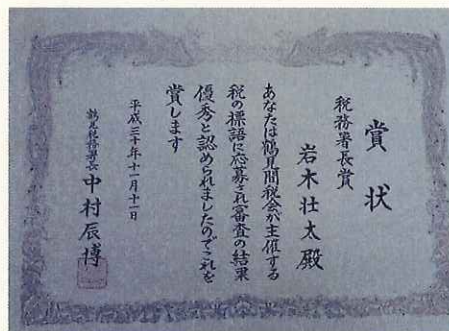 賞状
税務署長賞
岩木壮太殿
あなたは鶴見間税会が主催する
税の標語に応募され審査の結果
優秀と認められましたのでこれを
賞します
平成三十年十一月十一日
鶴見税務署長 中村辰博